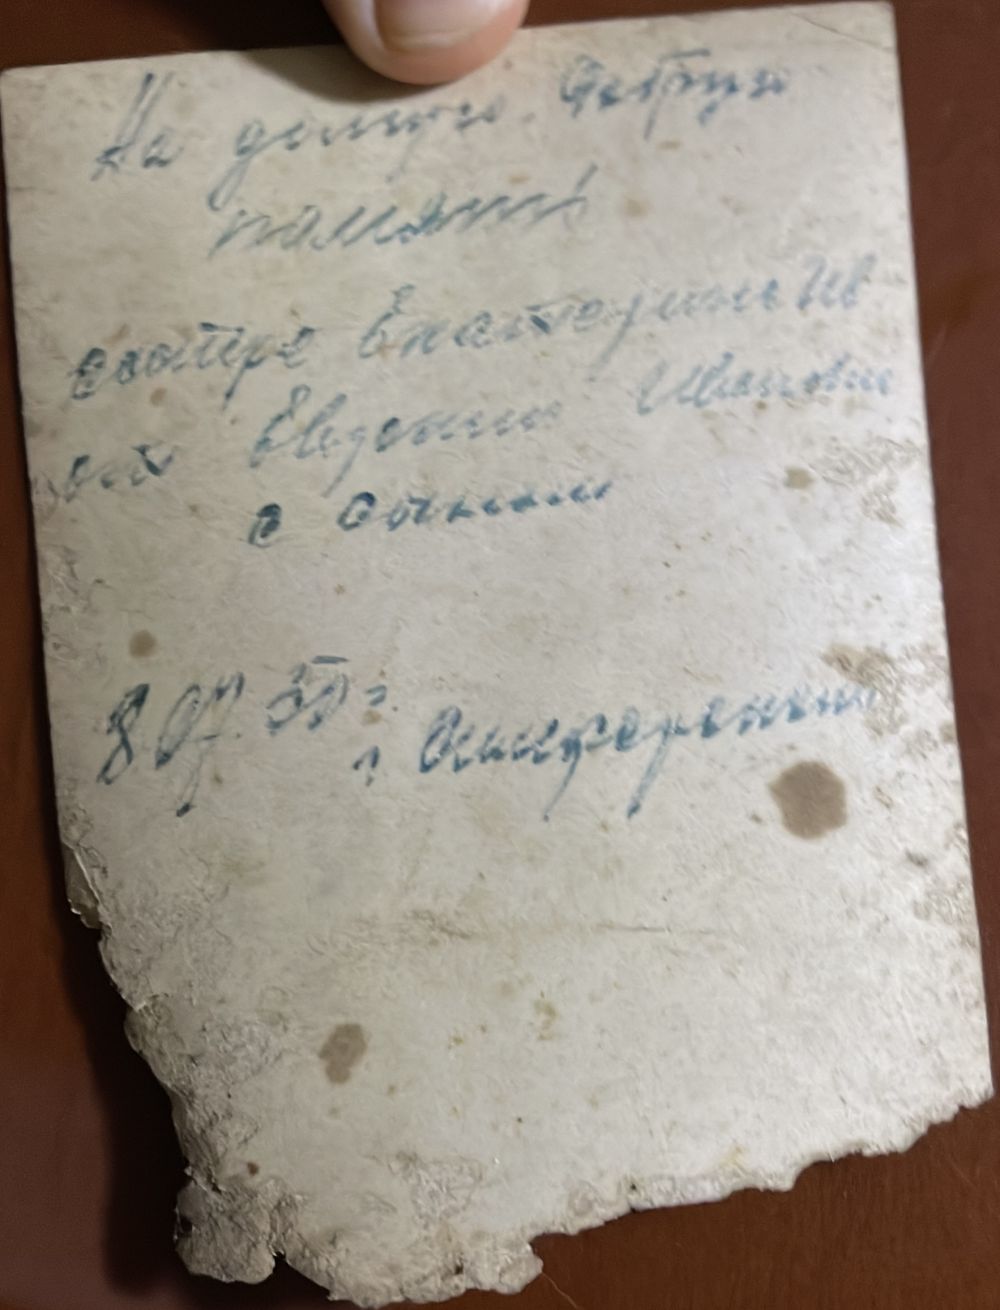 На долгую
память!
сестре Екатерине Ив
от Евдокии Ивановны
с сыном
8.07.55 г
г. Симферополь